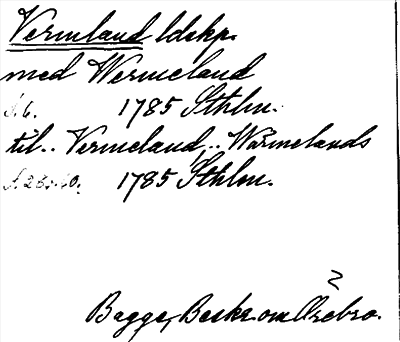 Vermland ldskp.
med Wermeland
S. 6. 1785 Sthlm.
til.. Vermeland,.. Wärmelands
1785 Sthlm.
Bagge, Beskr om Örebro.